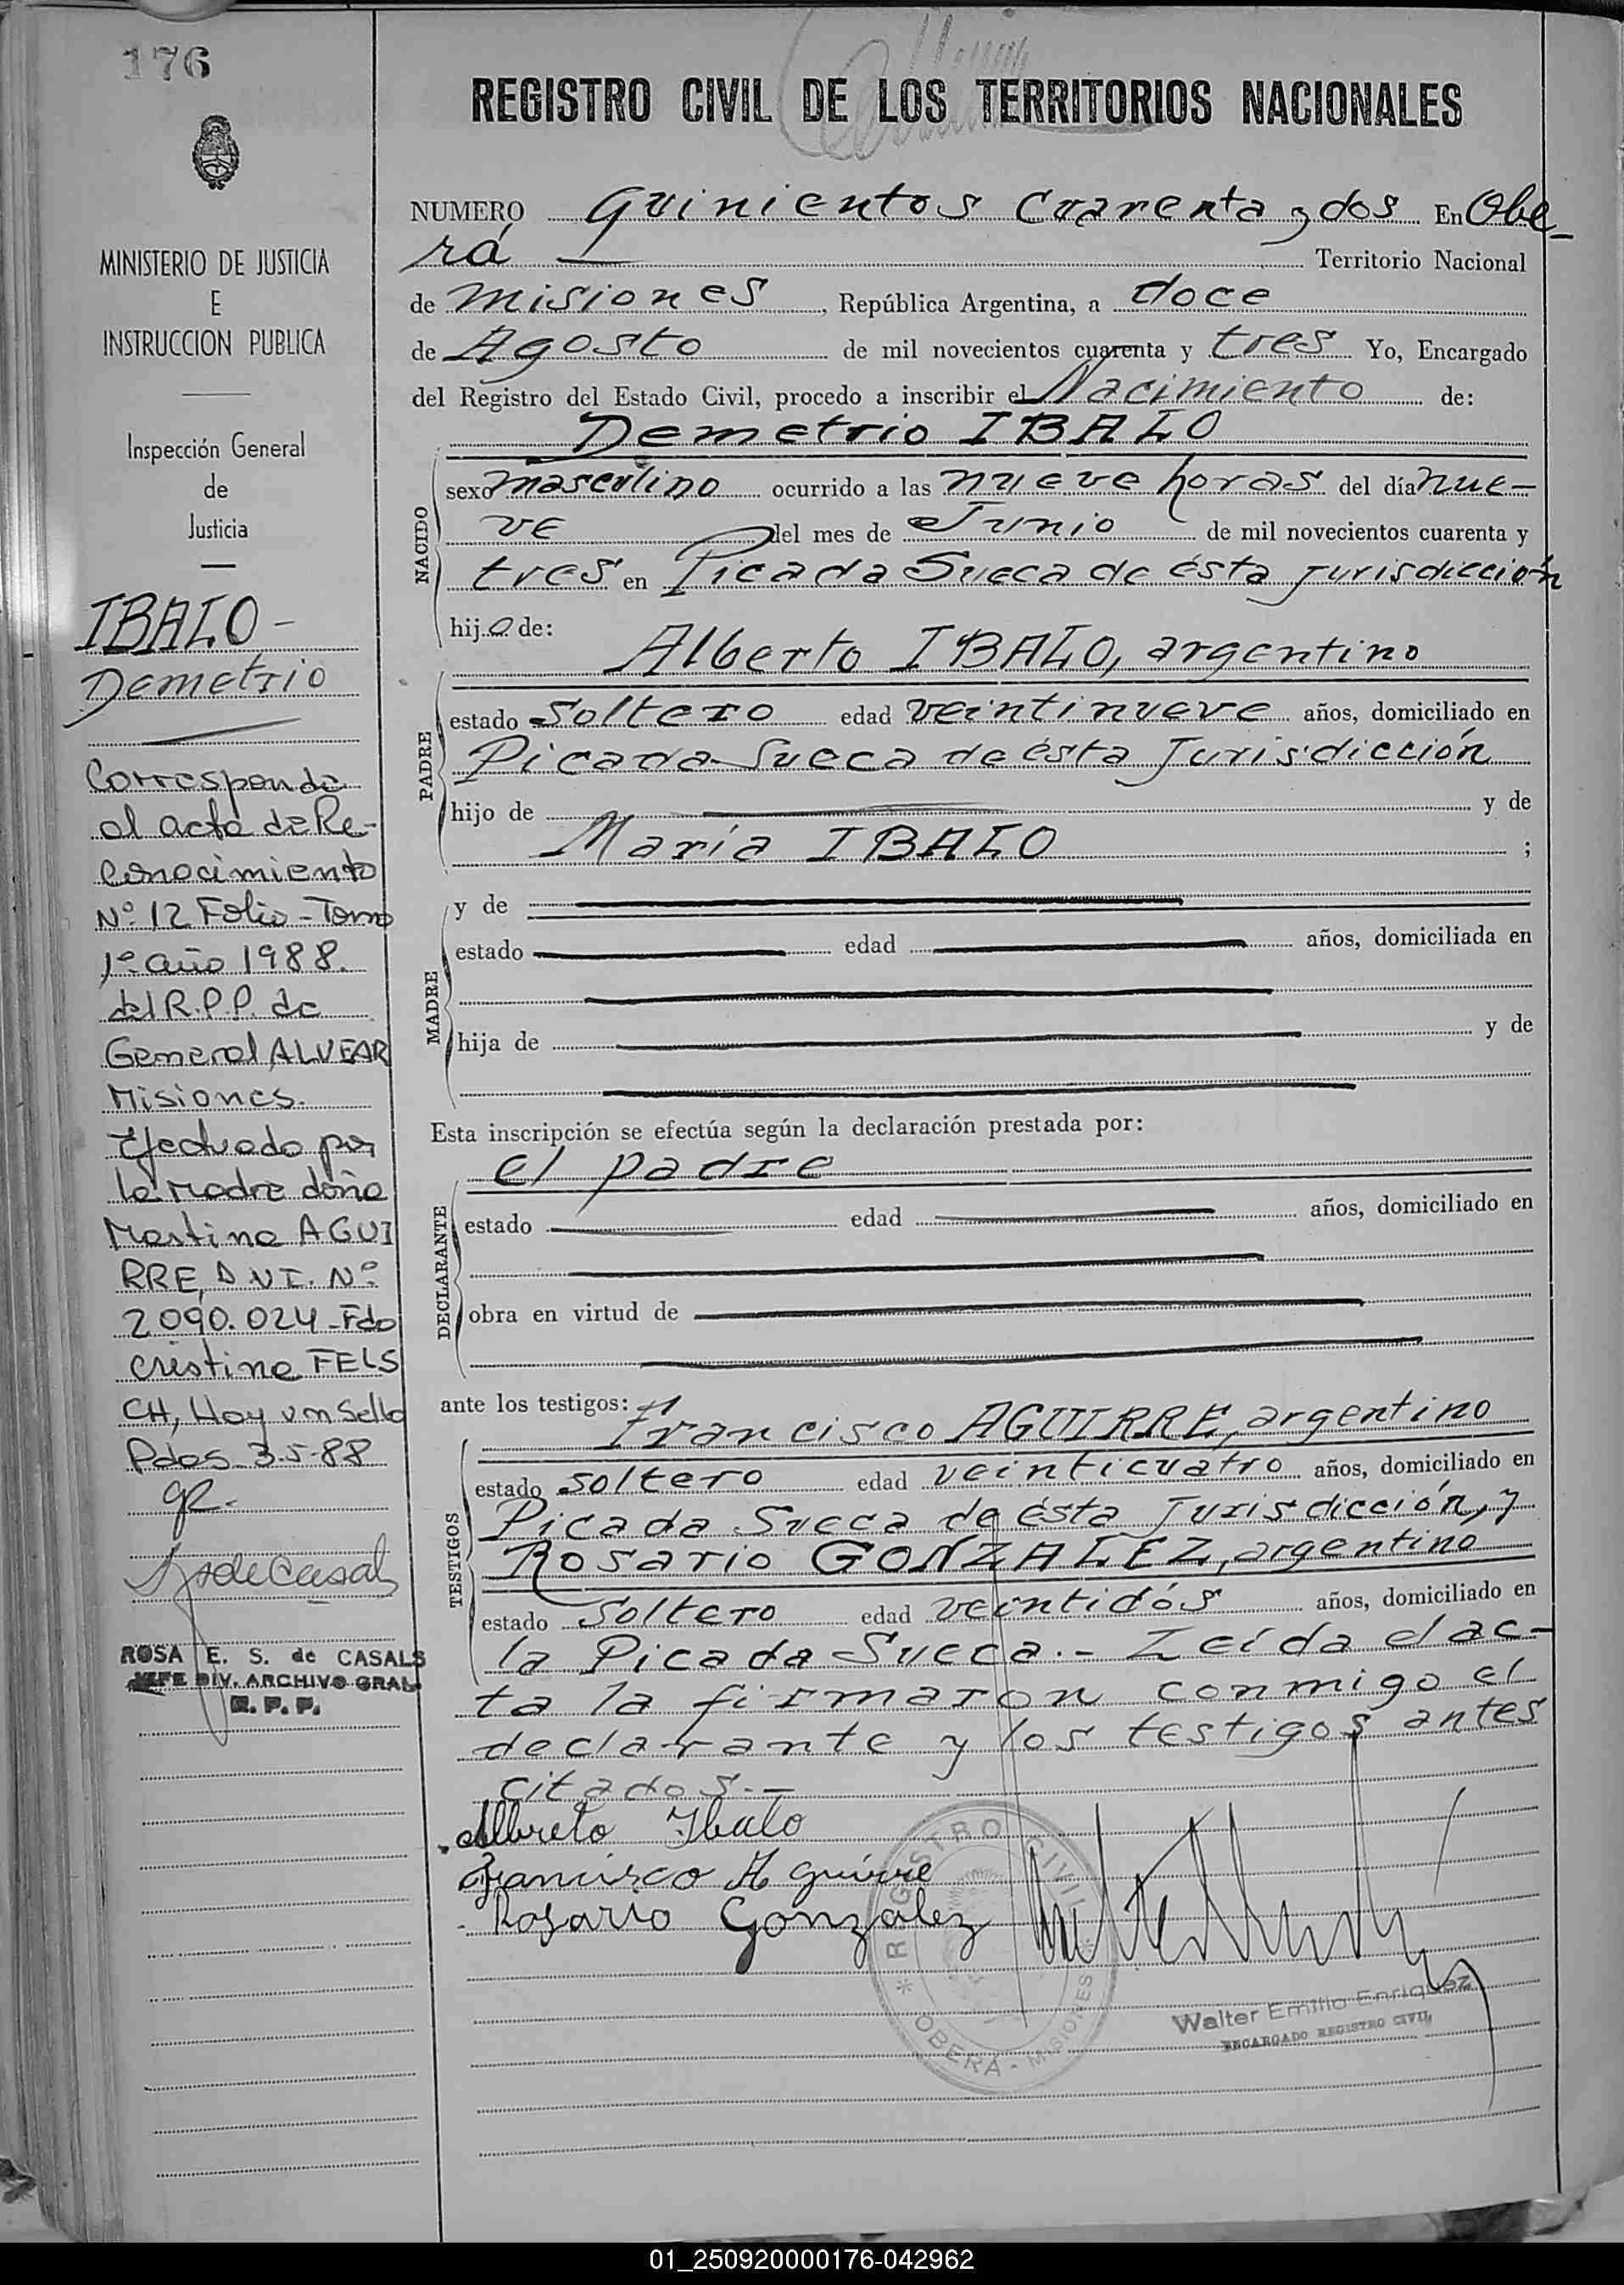 176
MINISTERIO DE JUSTICIA
E
INSTRUCCION PUBLICA
Inspección General
de
Justicia
IBALO -
Demetrio
Corresponde
al acta de Re-
conocimiento
Nº 12 Folio - Tomo
1º año 1988.
del R.P.P. de
General ALVEAR
Misiones.
Efectuado por
la Madre doña
Martina AGUI
RRE, D.N.I. Nº
2090.024 - Fdo
Cristina FELS
CH, Hay un Sello
Pdas. 3-5-88
ROSA E. S. de CASALS
JEFE DIV. ARCHIVO GRAL.
R. P. P.
REGISTRO CIVIL DE LOS TERRITORIOS NACIONALES
NUMERO Quinientos cuarenta y dos En Obe-
rá Territorio Nacional
de Misiones, República Argentina, a doce
de Agosto de mil novecientos cuarenta y tres Yo, Encargado
del Registro del Estado Civil, procedo a inscribir el Nacimiento de:
Demetrio IBALO
NACIDO
sexo masculino ocurrido a las nueve horas del día nue-
ve del mes de Junio de mil novecientos cuarenta y
tres en Picada Sueca de ésta jurisdicción
hijo de:
Alberto IBALO, argentino
PADRE
estado Soltero edad veintinueve años, domiciliado en
Picada Sueca de ésta Jurisdicción
hijo de y de
María IBALO ;
MADRE
y de
estado edad años, domiciliada en
hija de y de
Esta inscripción se efectúa según la declaración prestada por:
el padre
DECLARANTE
estado edad años, domiciliado en
obra en virtud de
ante los testigos:
Francisco AGUIRRE, argentino
TESTIGOS
estado soltero edad veinticuatro años, domiciliado en
Picada Sueca de ésta Jurisdicción, y
Rosario GONZALEZ, argentino
estado Soltero edad veintidós años, domiciliado en
la Picada Sueca.- Leída el ac-
ta la firmaron conmigo el
declarante y los testigos antes
citados.-
Alberto Ibalo
Francisco Aguirre
Rosario Gonzalez
REGISTRO CIVIL
OBERÁ - MISIONES
Walter Emilio Enriquez
ENCARGADO REGISTRO CIVIL
01_250920000176-042962